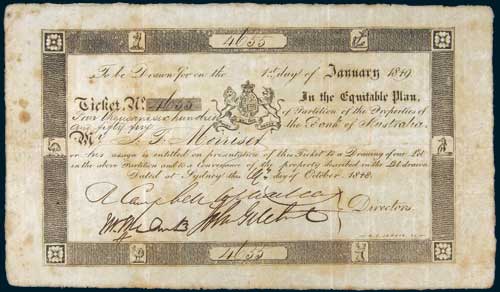 4655
To be Drawn for on the 1st day of January 1849
Ticket, No. 4655 In the Equitable Plan,
Four thousand six hundred of Partition of the Properties of
and fifty five the Bank of Australia.
Mr.
or his assign is entitled on presentation of this Ticket to a Drawing of one Lot
in the above Partition and to a Conveyance of the property described in the Lot drawn
Dated at Sydney the day of October 1848
Campbell
Directors
4655